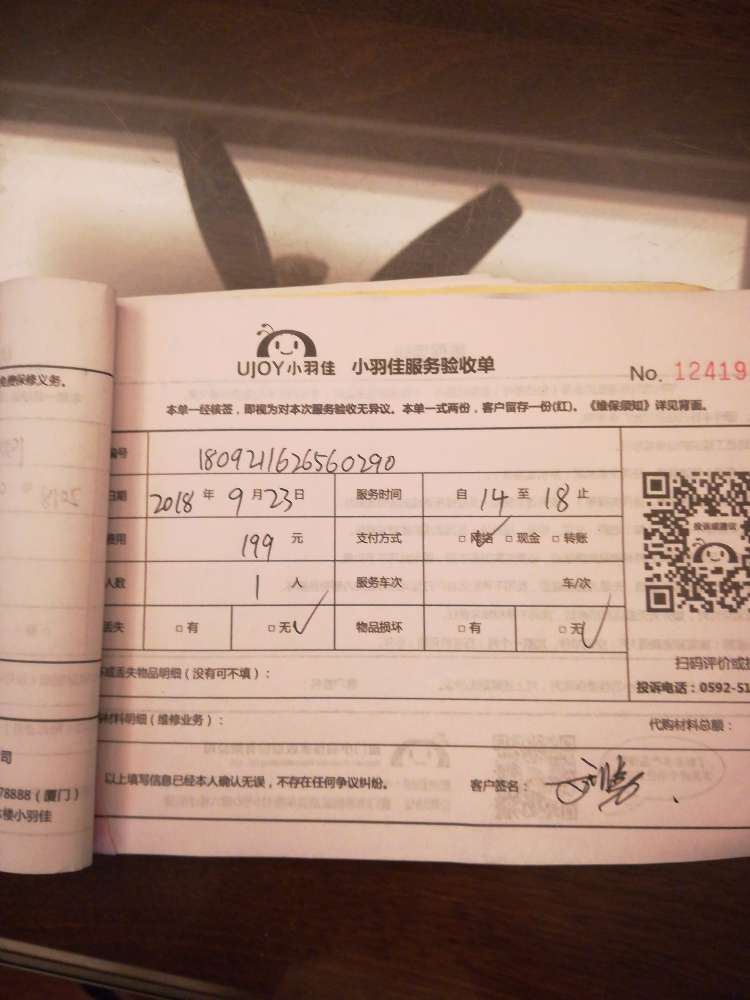 UJOY小羽佳 小羽佳服务验收单
No. 12419
本单一经核签，即视为对本次服务验收无异议。本单一式两份，客户留存一份(红)。《维保须知》详见背面。
编号 1809211626560290
日期 2018 年 9 月 23 日 服务时间 自 14 至 18 止
费用 199 元 支付方式 □网络 □现金 □转账
人数 1 人 服务车次 车/次
丢失 □有 □无 物品损坏 □有 □无
投诉或建议
扫码评价或投
投诉电话：0592-51
坏或丢失物品明细（没有可不填）：
材料明细（维修业务）： 代购材料总额：
以上填写信息已经本人确认无误，不存在任何争议纠纷。 客户签名：
免费保修义务。
司
78888（厦门）
楼小羽佳